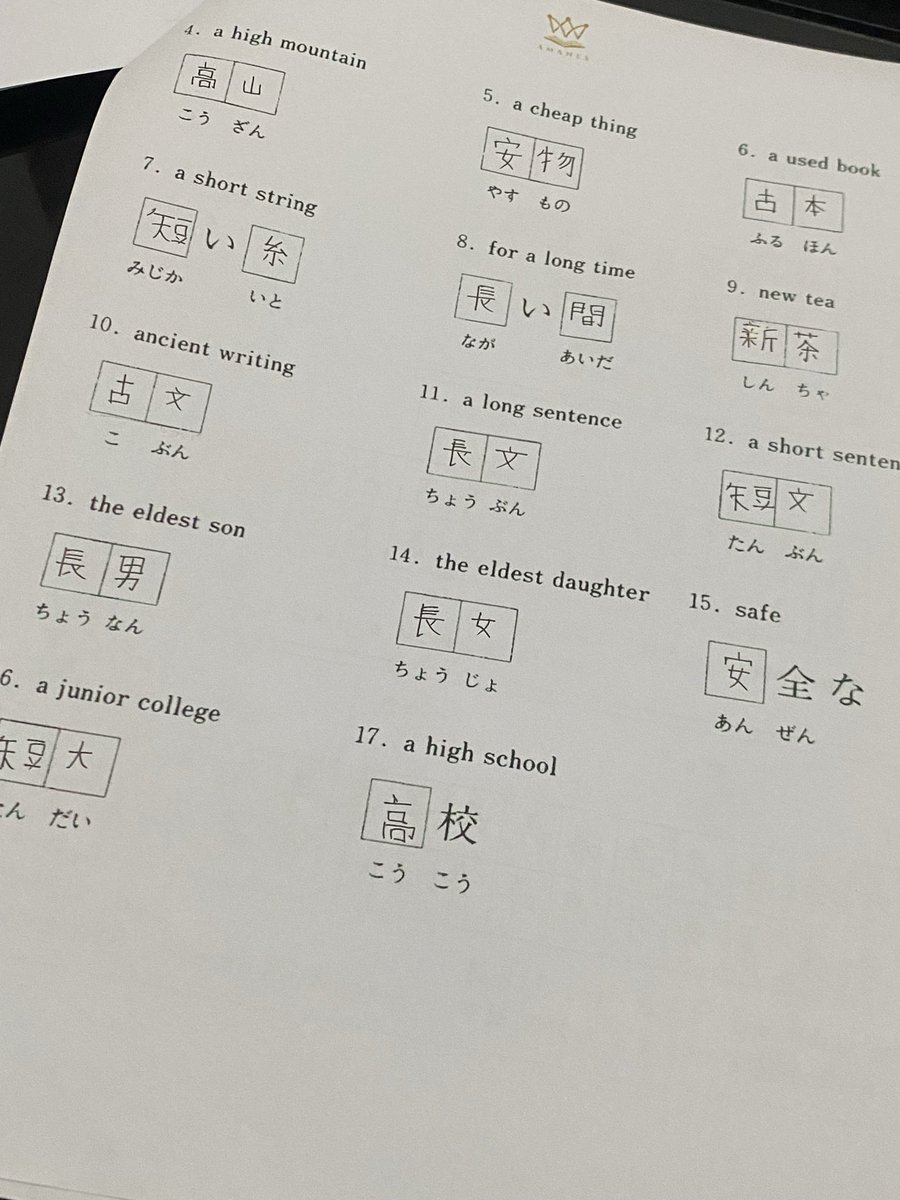 AMANES
4. a high mountain
高山
こう ざん
5. a cheap thing
安物
やす もの
6. a used book
古本
ふる ほん
7. a short string
短い糸
みじか いと
8. for a long time
長い間
なが あいだ
9. new tea
新茶
しん ちゃ
10. ancient writing
古文
こ ぶん
11. a long sentence
長文
ちょう ぶん
12. a short senten
短文
たん ぶん
13. the eldest son
長男
ちょう なん
14. the eldest daughter
長女
ちょう じょ
15. safe
安全な
あん ぜん
6. a junior college
短大
たん だい
17. a high school
高校
こう こう